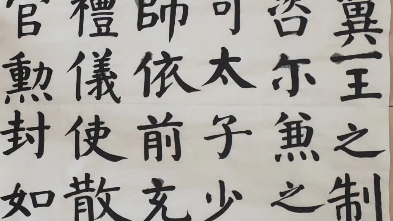 翼一王之制
咨尒兼之
可太子少
師依前充
禮儀使散
官勳封如